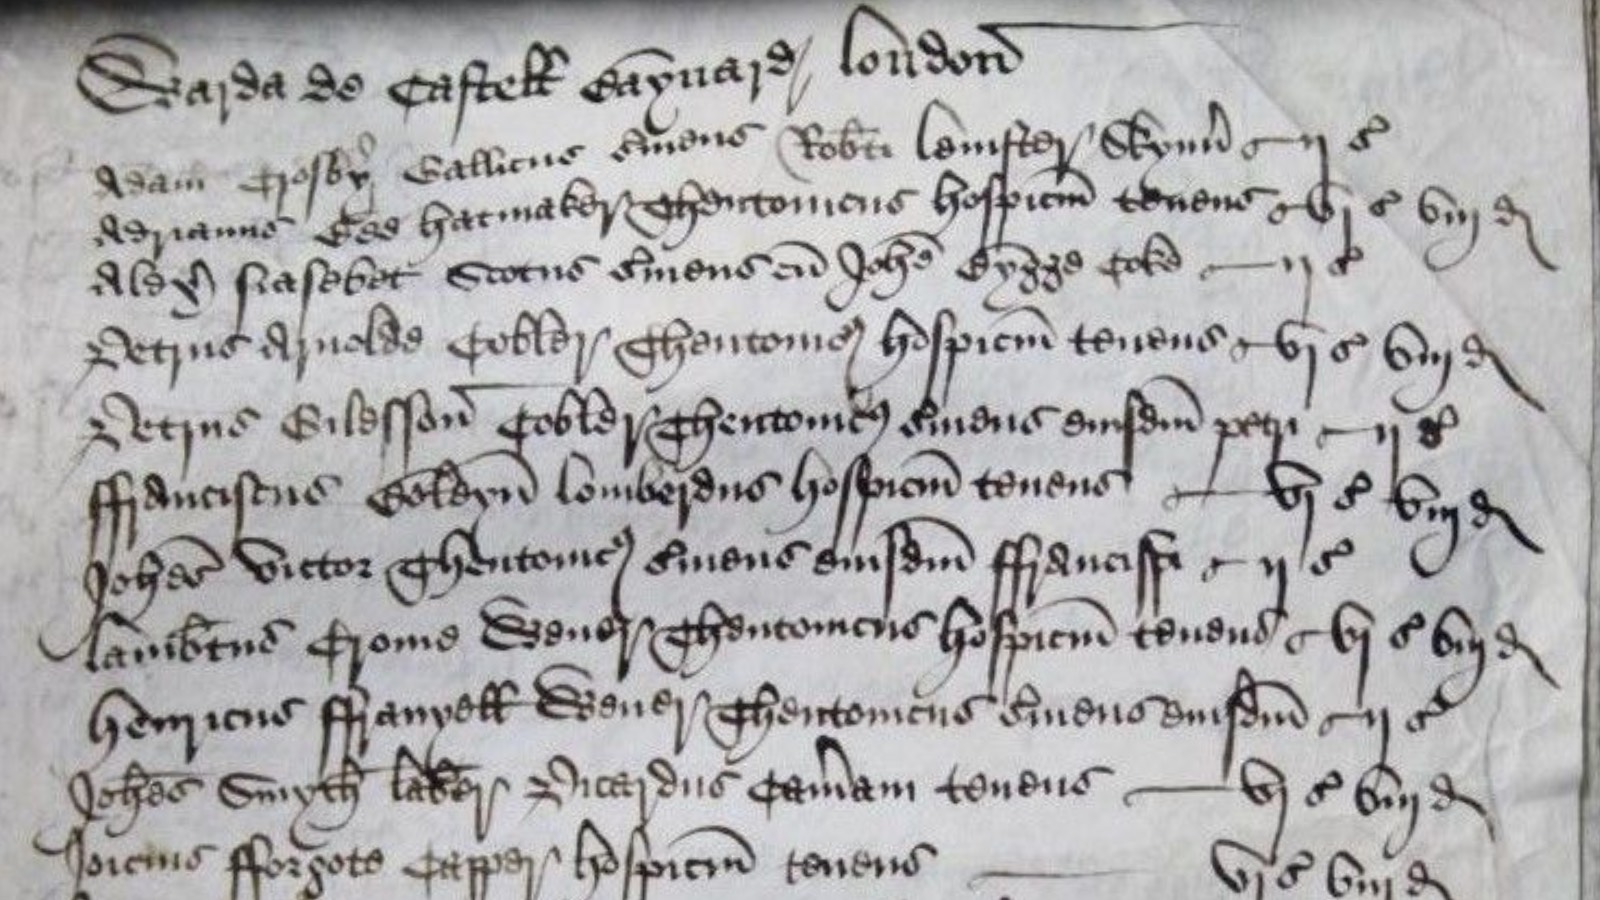 Warda de Castell Baynard london
Adam Crosby Gallicus s'uiens Rob'ti lemster Skynn' ij s
Adrianus hatmaker Theutonicus hospiciu' tenens vj s viij d
Alex' Scotus s'uiens cu' Joh'e Bygge Coke ij s
Petrus Arnolde Cobler Theutonic' hospiciu' tenens vj s viij d
Petrus Gilesson' Cobler Theutonic' s'uiens eiusdem petri ij s
ffranciscus Goldyn' lomberdus hospiciu' tenens vj s viij d
Joh'es victor Theutonic' s'uiens eiusdem ffrancissi ij s
lamb'tus Crome Weuer Theutonicus hospiciu' tenens vj s viij d
henricus ffranyell Weuer Theutonicus s'uiens eiusdem ij s
Joh'es Smyth lab'er Picardus Cam'am tenens vj s viij d
Joicius fforgote Capper hospiciu' tenens vj s viij d